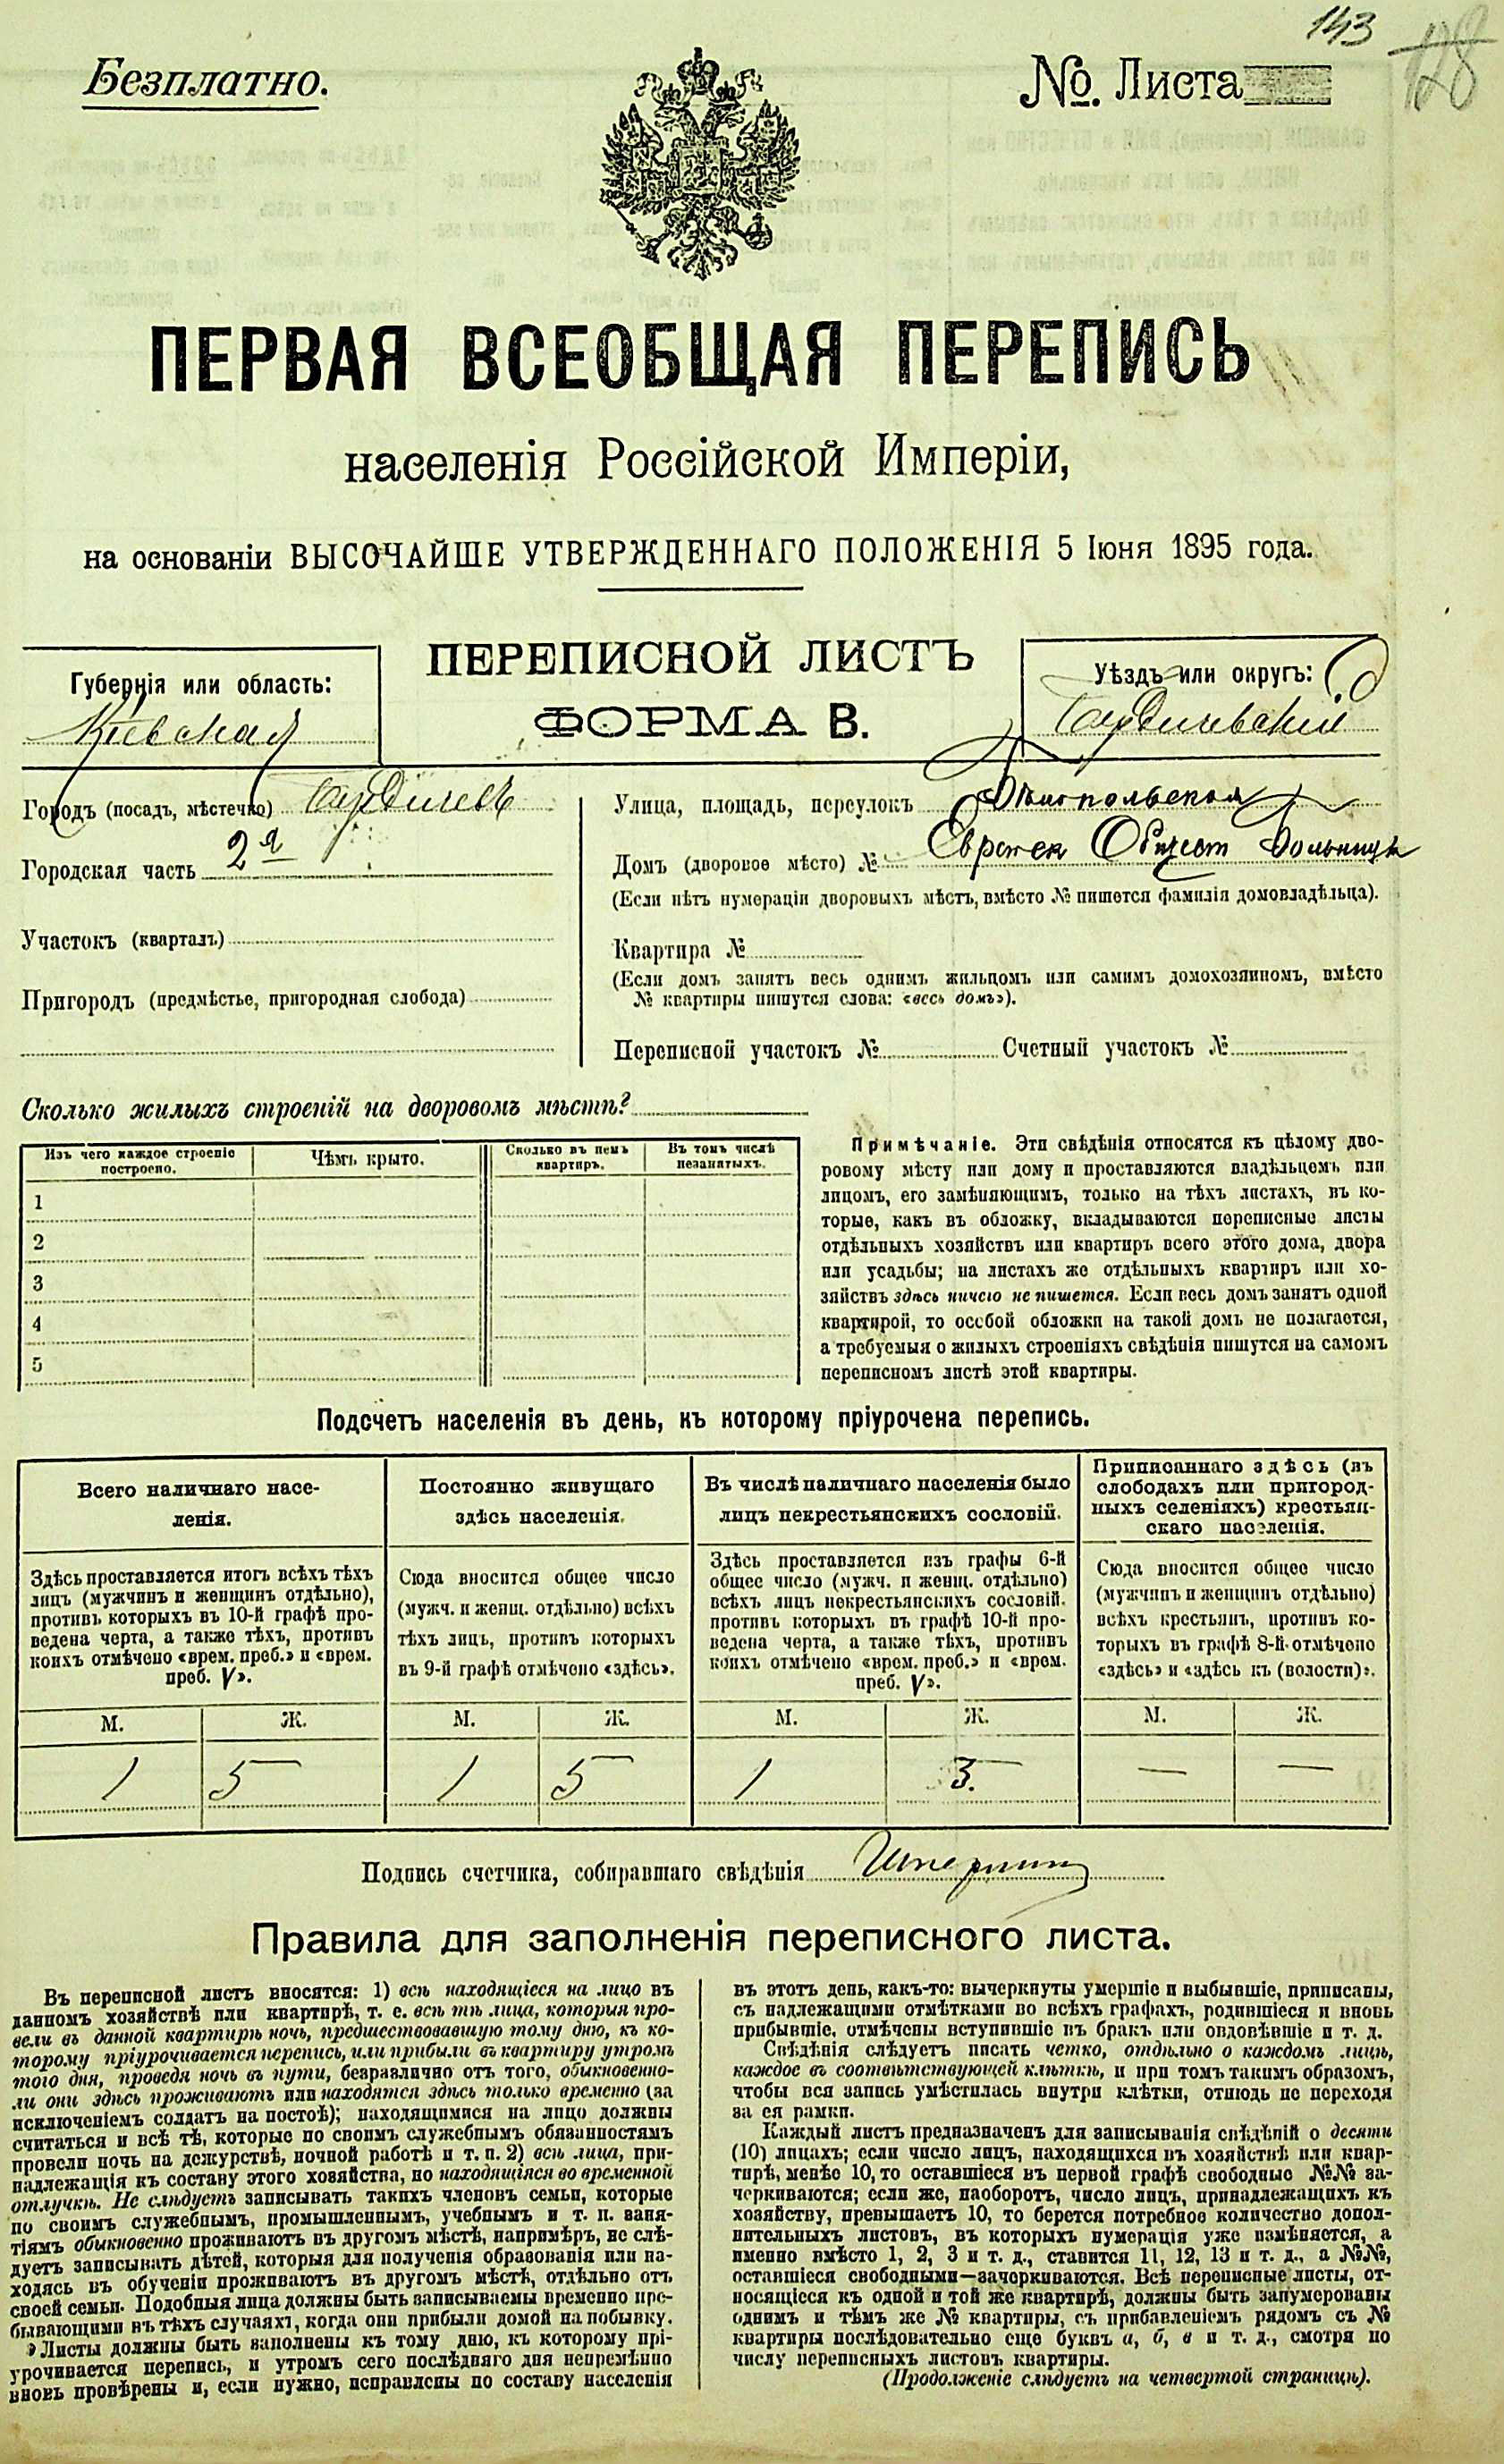 143
128
Безплатно.
№. Листа
ПЕРВАЯ ВСЕОБЩАЯ ПЕРЕПИСЬ
населенія Россійской Имперіи,
на основаніи ВЫСОЧАЙШЕ УТВЕРЖДЕННАГО ПОЛОЖЕНІЯ 5 Іюня 1895 года.
ПЕРЕПИСНОЙ ЛИСТЪ
ФОРМА В.
Губернія или область:
Кіевская
Уѣздъ или округъ:
Бердичевскій
Городъ (посадъ, мѣстечко) Бердичевъ
Городская часть 2я
Участокъ (кварталъ)
Пригородъ (предмѣстье, пригородная слобода)
Улица, площадь, переулокъ Бѣлопольская
Домъ (дворовое мѣсто) № Еврейск Общест Больница
(Если нѣтъ нумераціи дворовыхъ мѣстъ, вмѣсто № пишется фамилія домовладѣльца).
Квартира №
(Если домъ занятъ весь однимъ жильцомъ или самимъ домохозяиномъ, вмѣсто
№ квартиры пишутся слова: «весь домъ»).
Переписной участокъ № Счетный участокъ №
Сколько жилыхъ строеній на дворовомъ мѣстѣ?
Изъ чего каждое строеніе построено.
Чѣмъ крыто.
Сколько въ немъ квартиръ.
Въ томъ числѣ незанятыхъ.
1
2
3
4
5
Примѣчаніе. Эти свѣдѣнія относятся къ цѣлому дво-
ровому мѣсту или дому и проставляются владѣльцемъ или
лицомъ, его замѣняющимъ, только на тѣхъ листахъ, въ ко-
торые, какъ въ обложку, вкладываются переписные листы
отдѣльныхъ хозяйствъ или квартиръ всего этого дома, двора
или усадьбы; на листахъ же отдѣльныхъ квартиръ или хо-
зяйствъ здѣсь ничего не пишется. Если весь домъ занятъ одной
квартирой, то особой обложки на такой домъ не полагается,
а требуемыя о жилыхъ строеніяхъ свѣдѣнія пишутся на самомъ
переписномъ листѣ этой квартиры.
Подсчетъ населенія въ день, къ которому пріурочена перепись.
Всего наличнаго насе-
ленія.
Здѣсь проставляется итогъ всѣхъ тѣхъ
лицъ (мужчинъ и женщинъ отдѣльно),
противъ которыхъ въ 10-й графѣ про-
ведена черта, а также тѣхъ, противъ
коихъ отмѣчено «врем. преб.» и «врем.
преб. V».
Постоянно живущаго
здѣсь населенія.
Сюда вносится общее число
(мужч. и женщ. отдѣльно) всѣхъ
тѣхъ лицъ, противъ которыхъ
въ 9-й графѣ отмѣчено «здѣсь».
Въ числѣ наличнаго населенія было
лицъ некрестьянскихъ сословій.
Здѣсь проставляется изъ графы 6-й
общее число (мужч. и женщ. отдѣльно)
всѣхъ лицъ некрестьянскихъ сословій.
противъ которыхъ въ графѣ 10-й про-
ведена черта, а также тѣхъ, противъ
коихъ отмѣчено «врем. преб.» и «врем.
преб. V».
Приписаннаго здѣсь (въ
слободахъ или пригород-
ныхъ селеніяхъ) крестьян-
скаго населенія.
Сюда вносится общее число
(мужчинъ и женщинъ отдѣльно)
всѣхъ крестьянъ, противъ ко-
торыхъ въ графѣ 8-й отмѣчено
«здѣсь» и «здѣсь къ (волости)».
М. Ж. М. Ж. М. Ж. М. Ж.
1 5 1 5 1 3. — —
Подпись счетчика, собиравшаго свѣдѣнія
Правила для заполненія переписного листа.
Въ переписной листъ вносятся: 1) всѣ находящіеся на лицо въ
данномъ хозяйствѣ или квартирѣ, т. е. всѣ тѣ лица, которыя про-
вели въ данной квартирѣ ночь, предшествовавшую тому дню, къ ко-
торому пріурочивается перепись, или прибыли въ квартиру утромъ
того дня, проведя ночь въ пути, безразлично отъ того, обыкновенно-
ли они здѣсь проживаютъ или находятся здѣсь только временно (за
исключеніемъ солдатъ на постоѣ); находящимися на лицо должны
считаться и всѣ тѣ, которые по своимъ служебнымъ обязанностямъ
провели ночь на дежурствѣ, ночной работѣ и т. п. 2) всѣ лица, при-
надлежащія къ составу этого хозяйства, но находящіяся во временной
отлучкѣ. Не слѣдуетъ записывать такихъ членовъ семьи, которые
по своимъ служебнымъ, промышленнымъ, учебнымъ и т. п. заня-
тіямъ обыкновенно проживаютъ въ другомъ мѣстѣ, напримѣръ, не слѣ-
дуетъ записывать дѣтей, которыя для полученія образованія или на-
ходясь въ обученіи проживаютъ въ другомъ мѣстѣ, отдѣльно отъ
своей семьи. Подобныя лица должны быть записываемы временно пре-
бывающими въ тѣхъ случаяхъ, когда они прибыли домой на побывку.
Листы должны быть заполнены къ тому дню, къ которому прі-
урочивается перепись, и утромъ сего послѣдняго дня непремѣнно
вновь провѣрены и, если нужно, исправлены по составу населенія
въ этотъ день, какъ-то: вычеркнуты умершіе и выбывшіе, приписаны,
съ надлежащими отмѣтками во всѣхъ графахъ, родившіеся и вновь
прибывшіе, отмѣчены вступившіе въ бракъ или овдовѣвшіе и т. д.
Свѣдѣнія слѣдуетъ писать четко, отдѣльно о каждомъ лицѣ,
каждое въ соотвѣтствующей клѣткѣ, и при томъ такимъ образомъ,
чтобы вся запись умѣстилась внутри клѣтки, отнюдь не переходя
за ея рамки.
Каждый листъ предназначенъ для записыванія свѣдѣній о десяти
(10) лицахъ; если число лицъ, находящихся въ хозяйствѣ или квар-
тирѣ, менѣе 10, то оставшіеся въ первой графѣ свободные №№ за-
черкиваются; если же, наоборотъ, число лицъ, принадлежащихъ къ
хозяйству, превышаетъ 10, то берется потребное количество допол-
нительныхъ листовъ, въ которыхъ нумерація уже измѣняется, а
именно вмѣсто 1, 2, 3 и т. д., ставится 11, 12, 13 и т. д., а №№,
оставшіеся свободными—зачеркиваются. Всѣ переписные листы, от-
носящіеся къ одной и той же квартирѣ, должны быть занумерованы
однимъ и тѣмъ же № квартиры, съ прибавленіемъ рядомъ съ №
квартиры послѣдовательно еще буквъ а, б, в и т. д., смотря по
числу переписныхъ листовъ квартиры.
(Продолженіе слѣдуетъ на четвертой страницѣ).